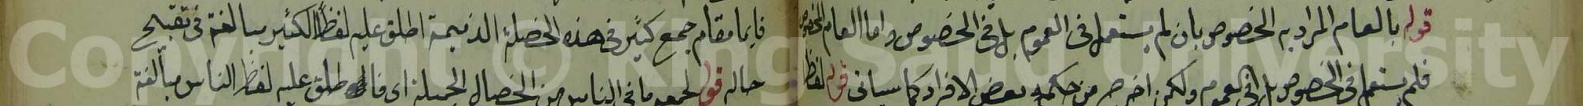 قوله بالعام المراد به الخصوص بان لم يستعمل فى العموم بل فى الخصوص واما العام المخصوص
فلم يستعمل فى الخصوص بل فى العموم ولكن اخرج من حكمه بعض الافراد كما سياتى قوله لفظ
قايما مقام جمع كثير فى هذه الخصلة الذميمة اطلق عليه لفظ الكثير مبالغة فى تقبيح
حاله قوله لجمعه ما فى الناس من الخصال الجميلة اى فاطلق عليه لفظ الناس مبالغة